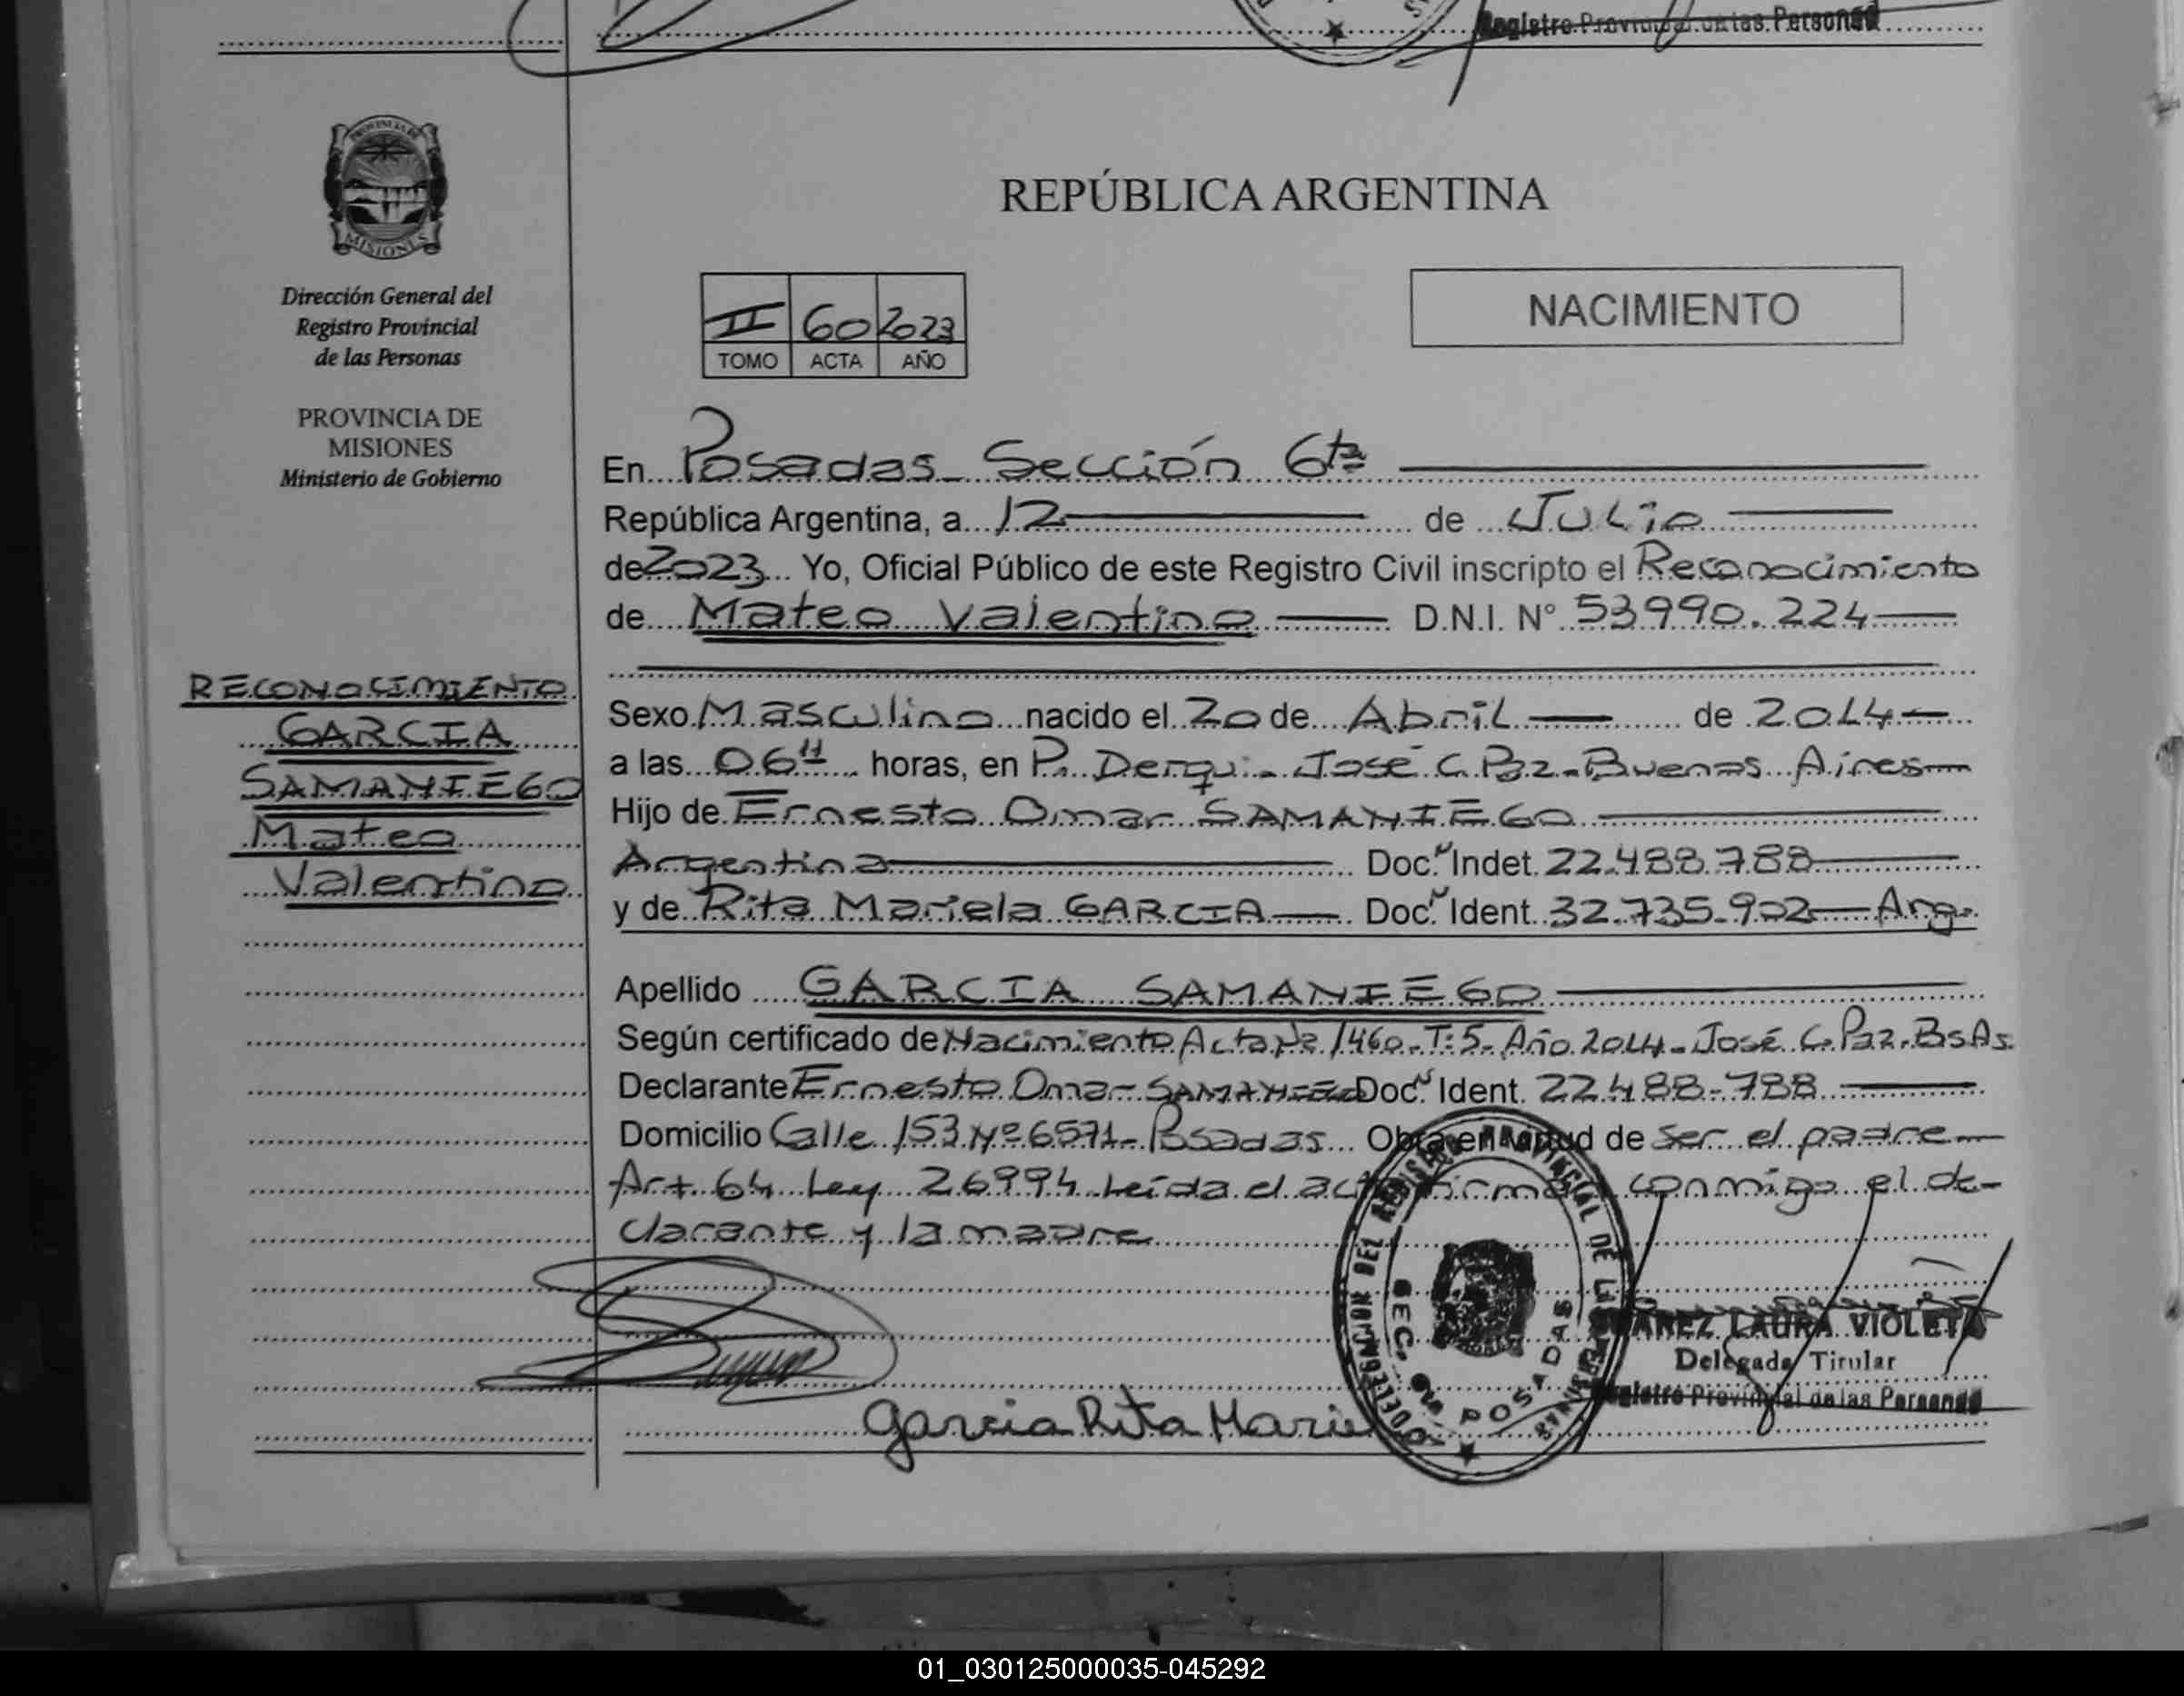 Registro Provincial de las Personas
PROVINCIA DE
MISIONES
Dirección General del
Registro Provincial
de las Personas
PROVINCIA DE
MISIONES
Ministerio de Gobierno
RECONOCIMIENTO
GARCIA
SAMANIEGO
Mateo
Valentino
REPÚBLICA ARGENTINA
II 60 2023
TOMO ACTA AÑO
NACIMIENTO
En Posadas - Sección 6ta
República Argentina, a 12 de Julio
de 2023 Yo, Oficial Público de este Registro Civil inscripto el Reconocimiento
de Mateo Valentino D.N.I. N° 53.990.224
Sexo Masculino nacido el 20 de Abril de 2014
a las 06 11 horas, en P. Derqui - José C. Paz - Buenos Aires
Hijo de Ernesto Omar SAMANIEGO
Argentina Doc. Indet. 22.488.788
y de Rita Mariela GARCIA Doc. Ident. 32.735.902 Arg.
Apellido GARCIA SAMANIEGO
Según certificado de Nacimiento Acta Nº 1460 - T: 5 - Año 2014 - José C. Paz. BsAs.
Declarante Ernesto Omar SAMANIEGO Doc. Ident. 22.488.788
Domicilio Calle 153 Nº 6571 - Posadas Obra en virtud de ser el padre
Art. 64 Ley 26994 Leída el acta firma conmigo el de-
clarante y la madre
Garcia Rita Marie
DELEGACION DEL REGISTRO PROVINCIAL DE LAS PERSONAS
SEC. 6ta POSADAS
LAURA VIOLETA
Delegada Titular
Registro Provincial de las Personas
01_030125000035-045292